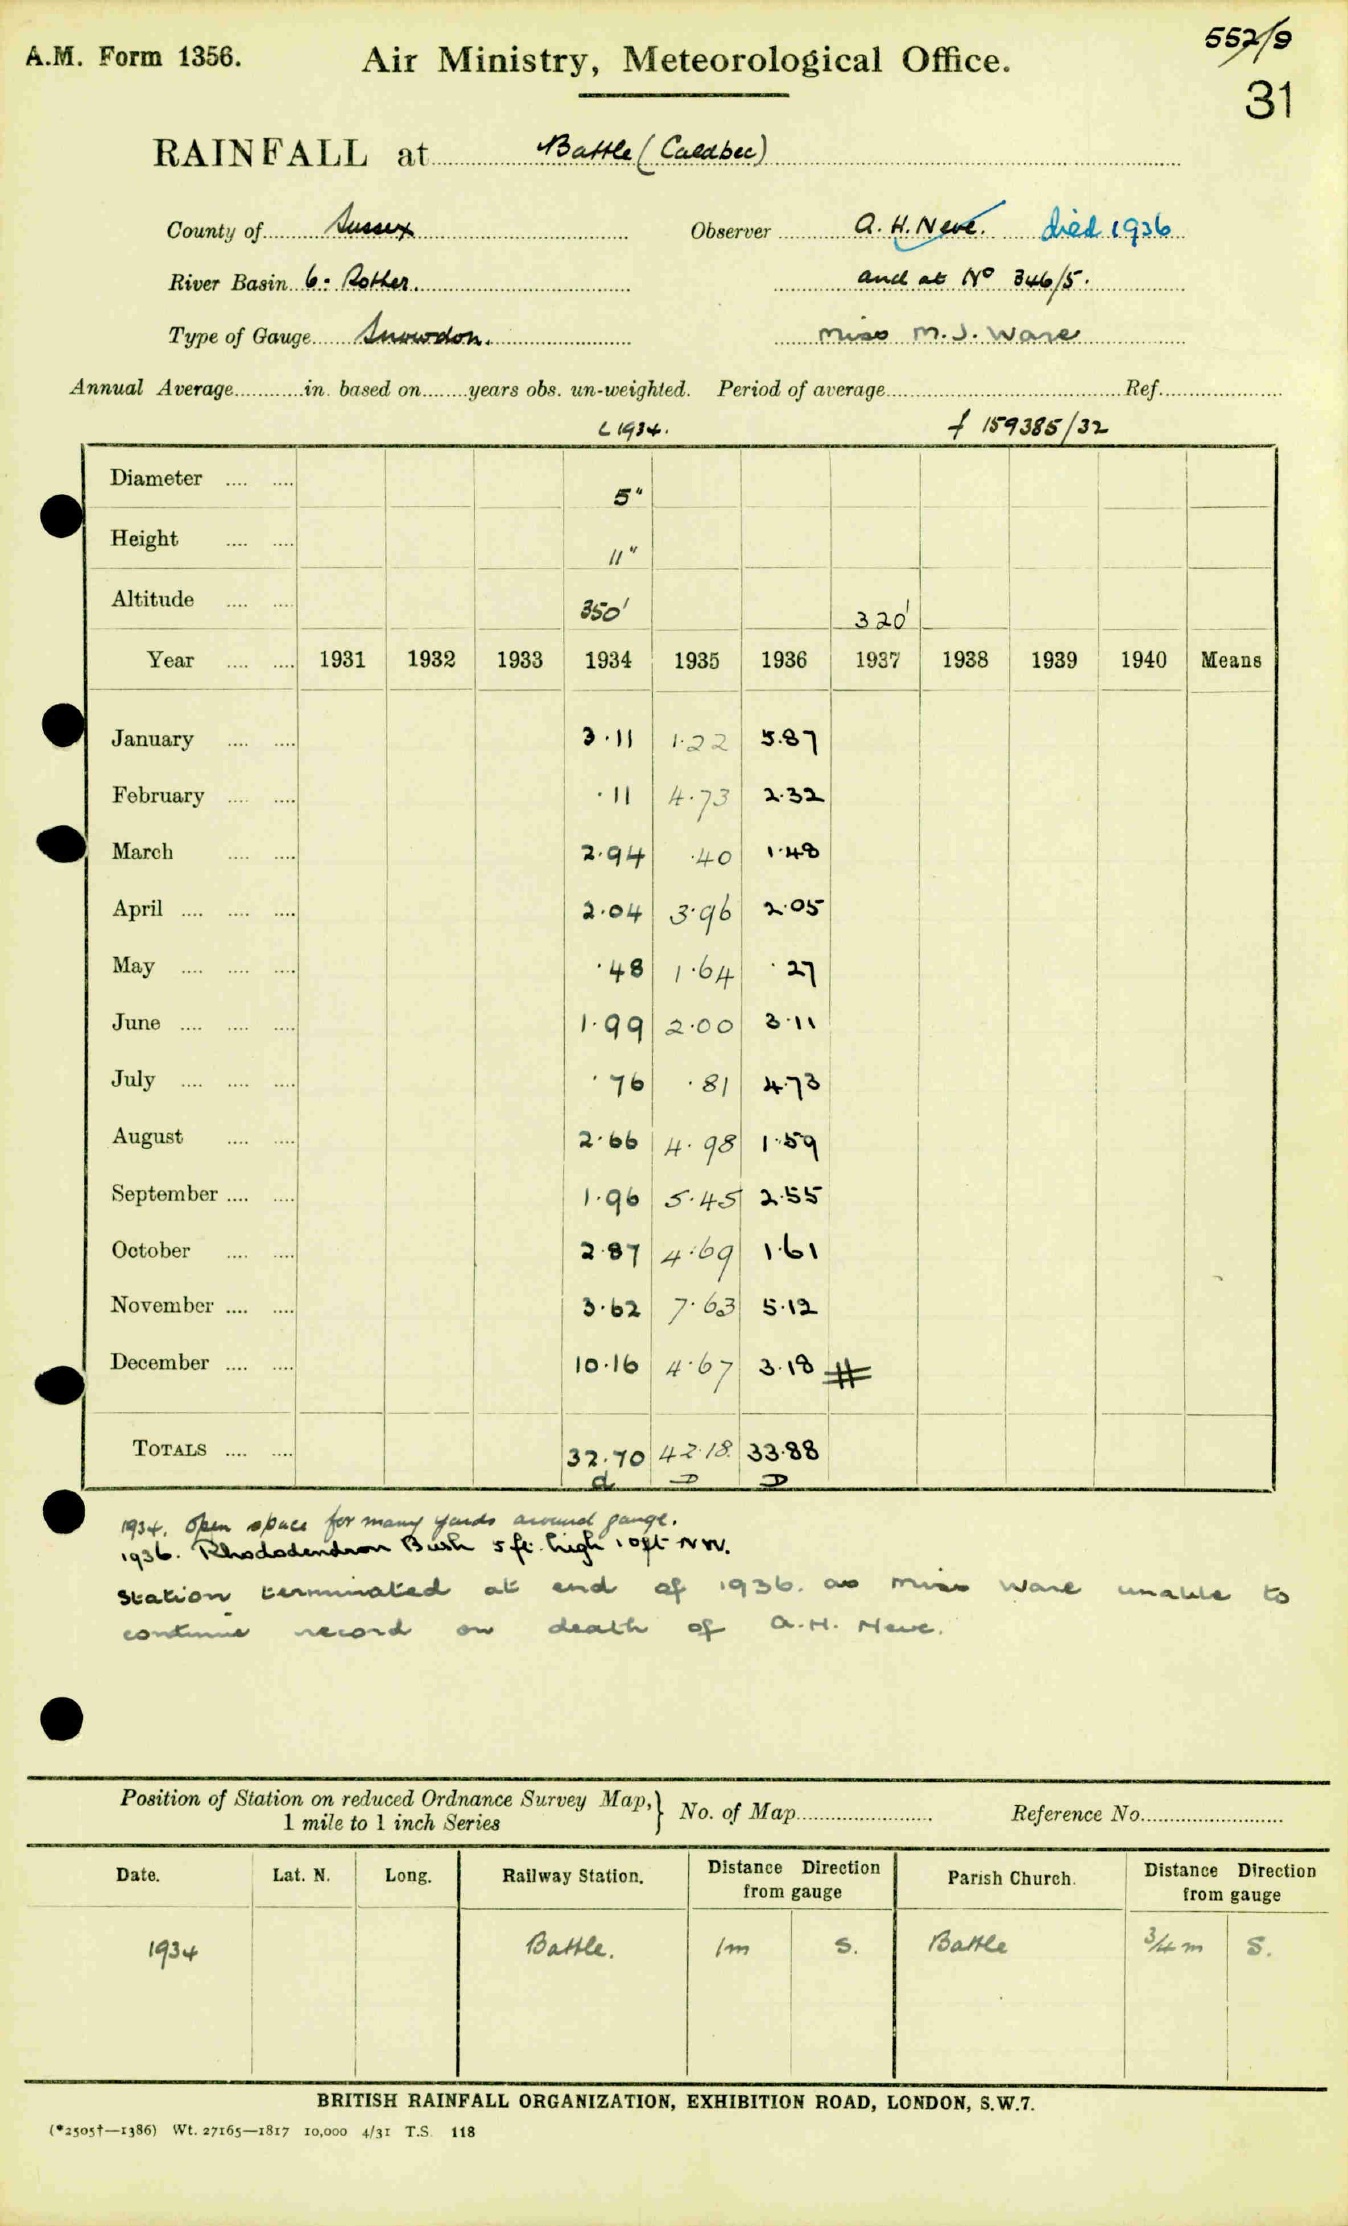 552/9
A.M. Form 1356. Air Ministry, Meteorological Office.
31
RAINFALL at Battle (Caldbec)
County of Sussex Observer A. H. Neve. died 1936
River Basin 6. Rother. and at No 346/5.
Type of Gauge Snowdon. Miss M. J. Ware
Annual Average in. based on years obs. un-weighted. Period of average Ref.
1934. f 159385/32
Diameter 5"
Height 11"
Altitude 350' 320'
Year 1931 1932 1933 1934 1935 1936 1937 1938 1939 1940 Means
January 3.11 1.22 5.87
February .11 4.73 2.32
March 2.94 .40 1.48
April 2.04 3.96 2.05
May .48 1.64 .27
June 1.99 2.00 3.11
July .76 .81 4.73
August 2.66 4.98 1.59
September 1.96 5.45 2.55
October 2.87 4.69 1.61
November 3.62 7.63 5.12
December 10.16 4.67 3.18 #
TOTALS 32.70 42.18 33.88
d D D
1934. Open space for many yards around gauge.
1936. Rhododendron Bush 5 ft. high 10ft NW.
Station terminated at end of 1936. as Miss Ware unable to
continue record on death of A.H. Neve.
Position of Station on reduced Ordnance Survey Map, } No. of Map Reference No.
1 mile to 1 inch Series
Date. Lat. N. Long. Railway Station. Distance Direction from gauge Parish Church. Distance Direction from gauge
1934 Battle. 1m S. Battle 3/4 m S.
BRITISH RAINFALL ORGANIZATION, EXHIBITION ROAD, LONDON, S.W.7.
(*2505†—1386) Wt. 27165—1817 10,000 4/31 T.S. 118